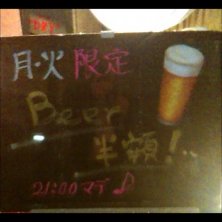 月・火 限定
Beer
半額！..
21:00マデ♪